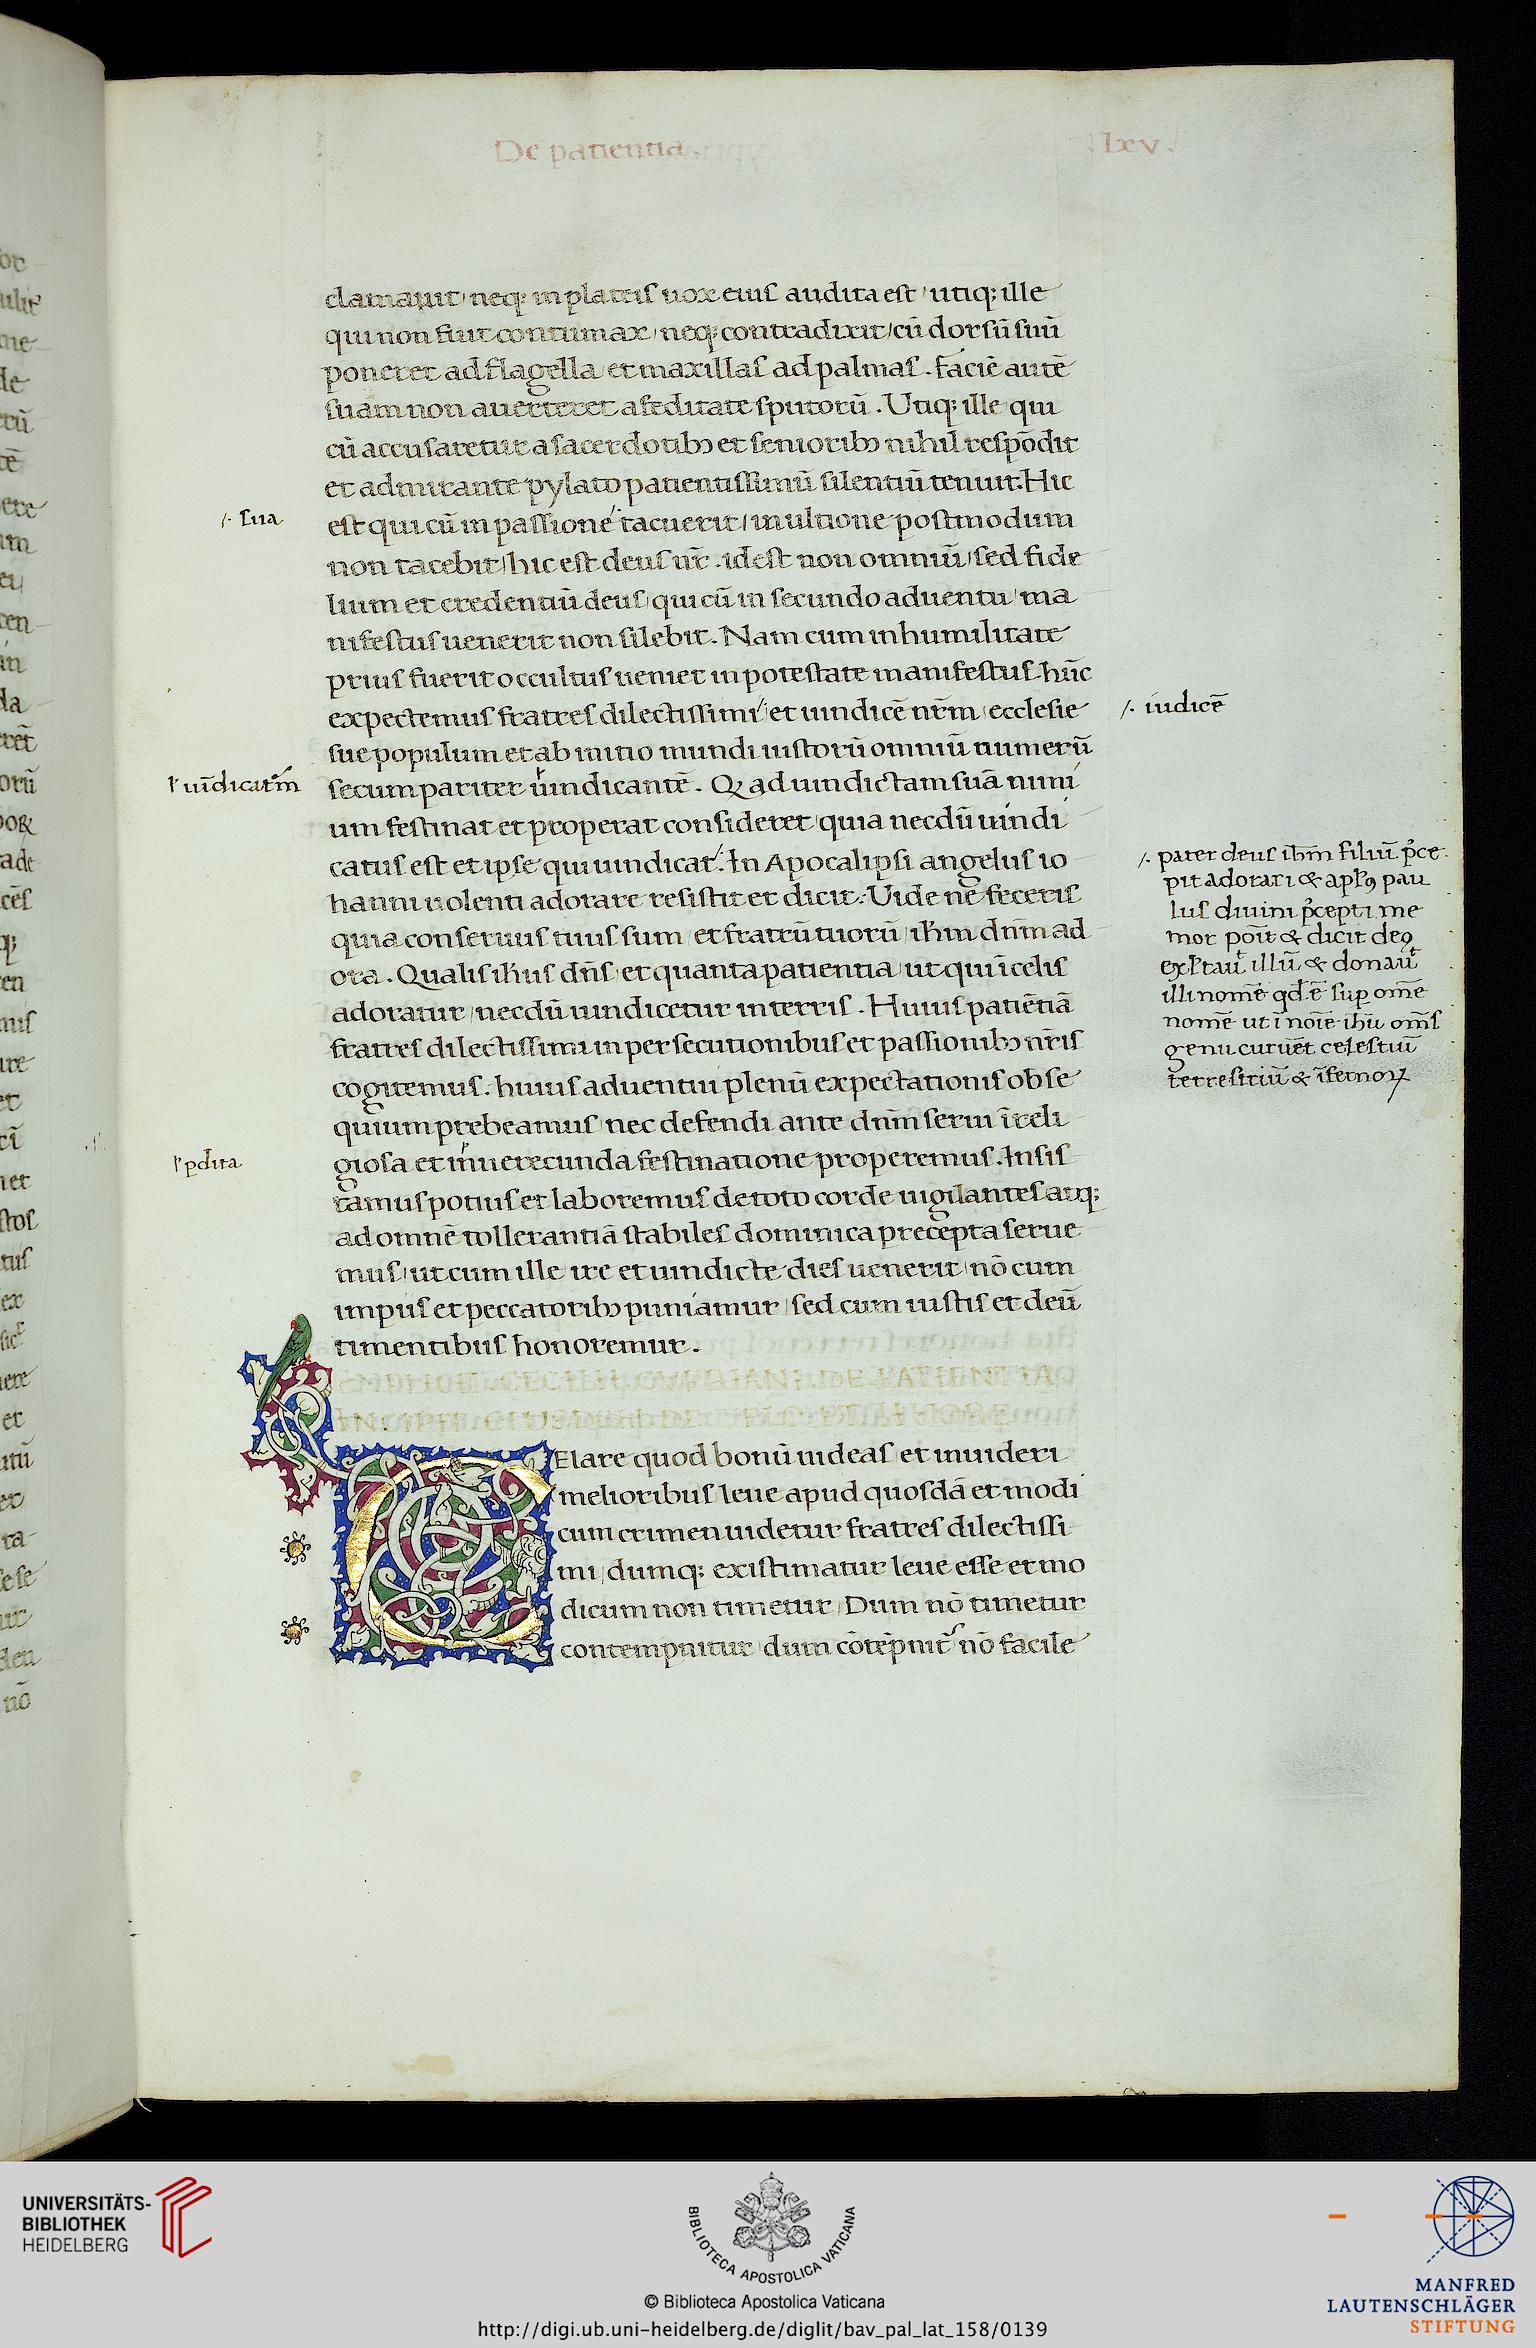 De patientia.
.lxv.
clamauit, neq; in plateis uox eius audita est, utiq; ille
qui non fuit contumax, neq; contradixit, cū dorsū suū
poneret ad flagella, et maxillas ad palmas. faciē autē
suam non auerteret a feditate sputorū. Utiq; ille qui
cū accusaretur a sacerdotibɔ et senioribɔ nihil respōdit
et admirante pylato patientissimū silentiū tenuit. Hic
⁒ sua
est qui cū in passione tacuerit, in ultione postmodum
non tacebit, hic est deus nr̄. id est non omniū, sed fide
lium et credentiū deus, qui cū in secundo aduentu, ma
nifestus uenerit non silebit. Nam cum in humilitate
prius fuerit occultus ueniet in potestate manifestus. hūc
expectemus fratres dilectissimi, et uindicē nr̄m, ecclesie
⁒ iudicē
sue populum et ab initio mundi iustorū omniū numerū
ł uīdicatr̄m
secum pariter uindicantē. Q ad uindictam suā nimi
um festinat et properat consideret, quia necdū uindi
catus est et ipse qui uindicat. In Apocalipsi angelus io
hanni uolenti adorare resistit et dicit. Uide ne feceris
quia conseruus tuus sum, et fratrū tuorū, ihm̄ dn̄m ad
ora. Qualis ihus dn̄s, et quanta patientia, ut qui ī celis
adoratur, necdū uindicetur in terris. Huius patiētiā
⁒ pater deus ihm̄ filiū p̄ce
pit adorari & apl̄9 pau
lus diuini p̄cepti me
mor poīt & dicit de9
exl̄tauͭ illū & donauͭ
illi nomē qd̄ ē sup omē
nomē ut ī noīe ihū om̄s
genu curuēt celestiū
terrestriū & īfernoꝝ
fratres dilectissimi in persecutionibus et passionibɔ nr̄is
cogitemus. huius aduentui plenū expectationis obse
quium prebeamus, nec defendi ante dn̄m serui īreli
ł pdita
giosa et inuerecunda festinatione properemus. Insis
tamus potius et laboremus de toto corde uigilantes atq;
ad omnē tollerantiā stabiles dominica precepta serue
mus, ut cum ille ire et uindicte dies uenerit, nō cum
impiis et peccatoribɔ puniamur, sed cum iustis et deū
timentibus honoremur.
Elare quod bonū uideas et inuideri
melioribus leue apud quosdā et modi
cum crimen uidetur fratres dilectissi
mi, dumq; existimatur leue esse et mo
dicum non timetur, Dum nō timetur
contempnitur, dum cōtēpnitͬ nō facile
UNIVERSITÄTS-
BIBLIOTHEK
HEIDELBERG
BIBLIOTECA APOSTOLICA VATICANA
© Biblioteca Apostolica Vaticana
http://digi.ub.uni-heidelberg.de/diglit/bav_pal_lat_158/0139
MANFRED
LAUTENSCHLÄGER
STIFTUNG